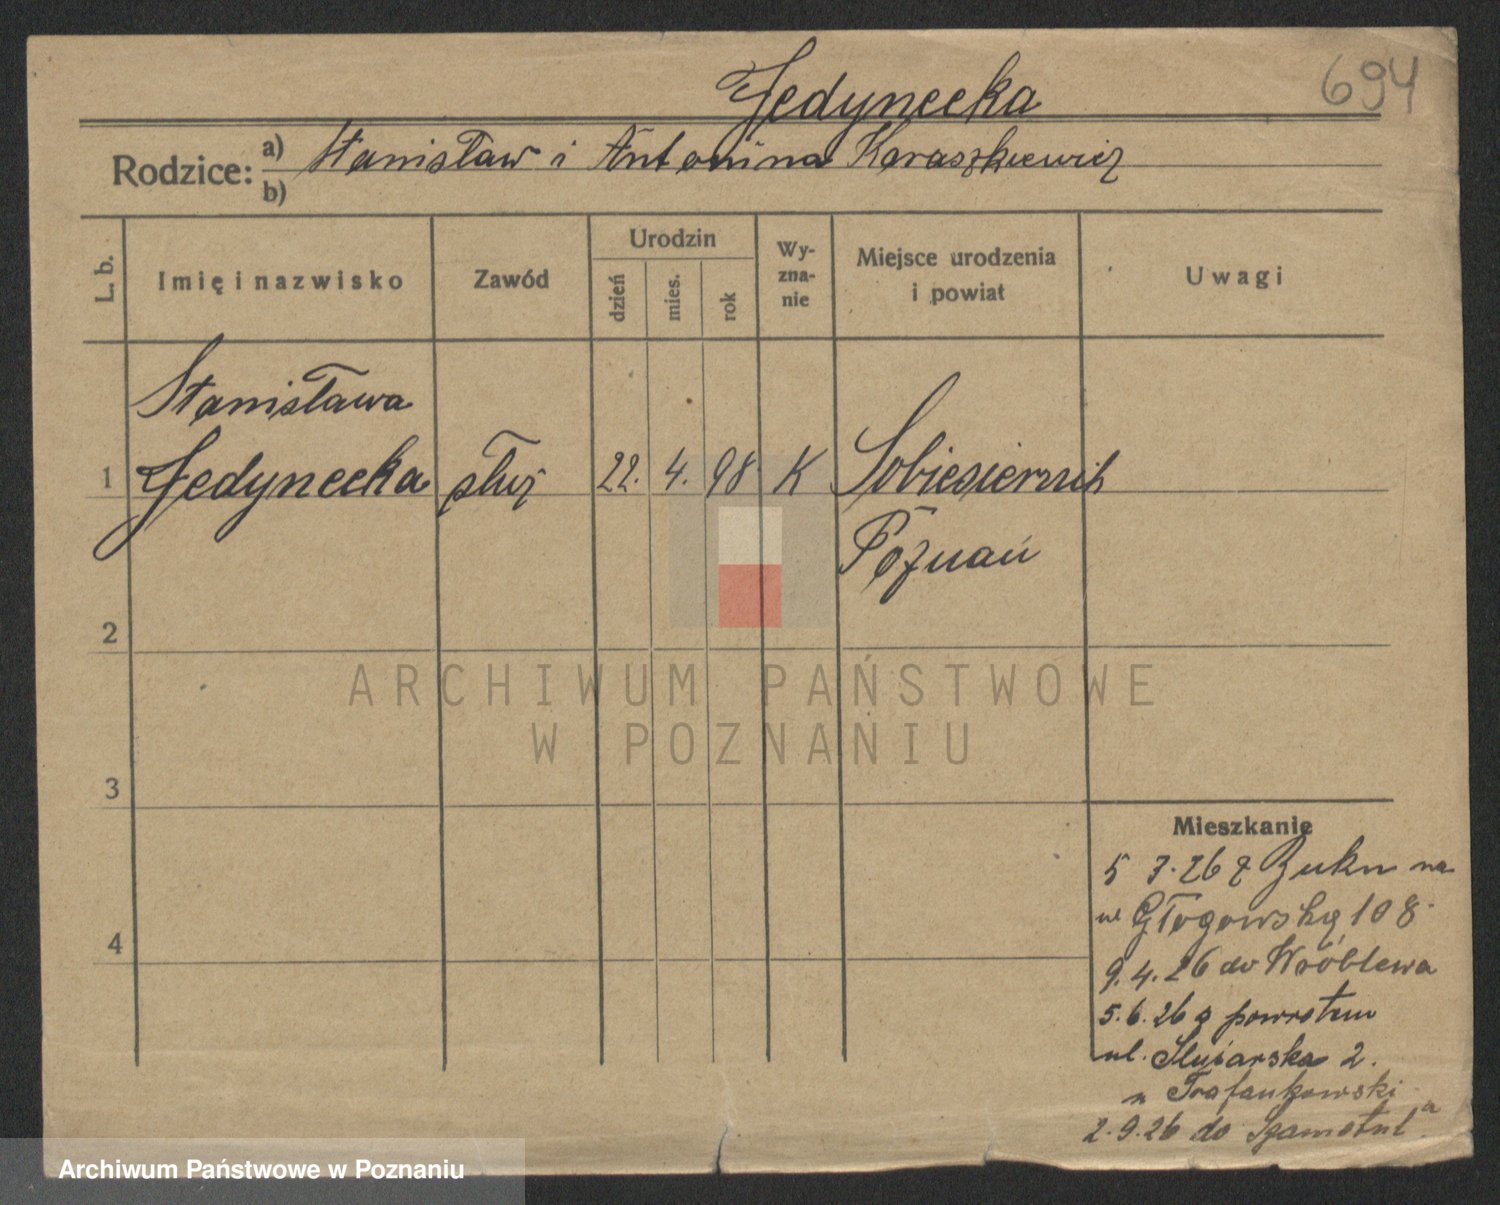 Jedynecka
694
Rodzice: a) Stanisław i Antonina Karaszkiewicz
b)
L. b.
Imię i nazwisko
Zawód
Urodzin
dzień
mies.
rok
Wy-
zna-
nie
Miejsce urodzenia
i powiat
Uwagi
Stanisława
1 Jedynecka służ 22. 4. 98 K Sobiesiernih
Poznań
2
3
4
Mieszkanie
5 7.26 z Buku na
ul Głogowską 108
9.4.26 do Wróblewa
5.6.26 z powrotem
ul. Ślusarska 2.
2.9.26 do Szamotuł
ARCHIWUM PAŃSTWOWE
W POZNANIU
Archiwum Państwowe w Poznaniu